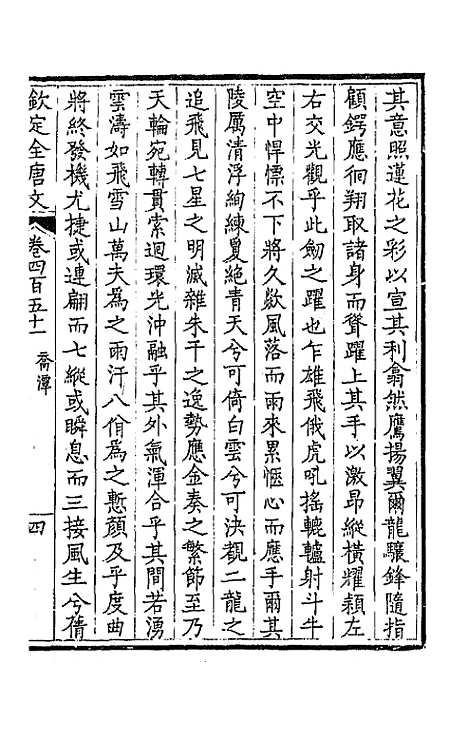 其意照蓮花之彩以宣其利翕然鷹揚翼爾龍驤鋒隨指
顧鍔應徊翔取諸身而聳躍上其手以激昂縱橫耀穎左
右交光觀乎此劒之躍也乍雄飛俄虎吼搖轆轤射斗牛
空中悍慓不下將久歘風落而雨來累愜心而應手爾其
陵厲清浮絢練敻絶青天兮可倚白雲兮可決覩二龍之
追飛見七星之明滅雜朱干之逸勢應金奏之繁節至乃
天輪宛轉貫索迴環光沖融乎其外氣渾合乎其間若湧
雲濤如飛雪山萬夫爲之雨汗八佾爲之慙顏及乎度曲
將終發機尤捷或連翩而七縱或瞬息而三接風生兮蒨
欽定全唐文 卷四百五十一 喬潭 四